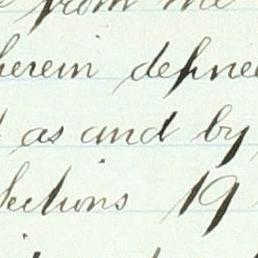 from me
herein define
as and by
Sections 19